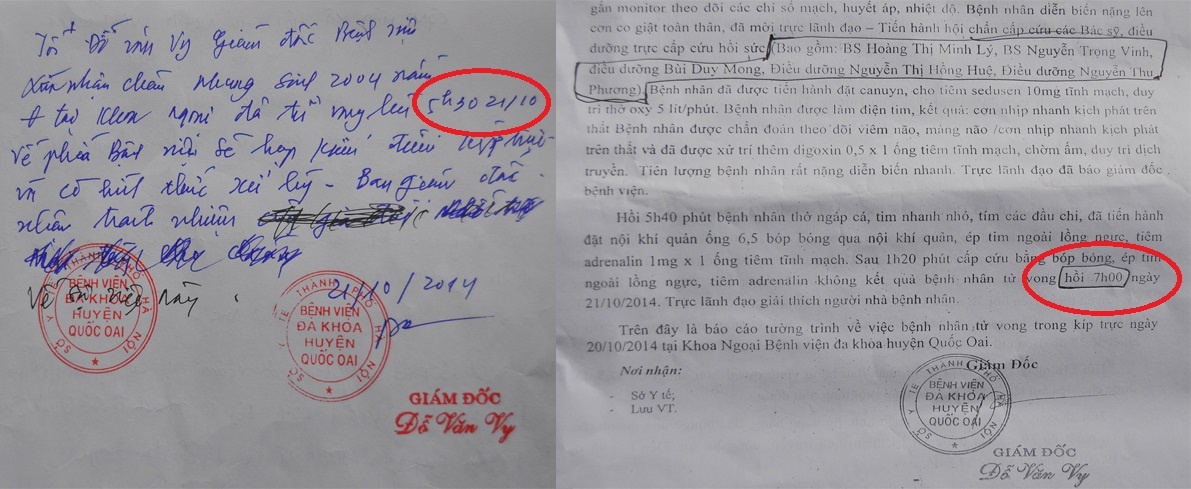 Tôi Đỗ Văn Vy Giám đốc Bệnh viện
Xác nhận cháu Nhung sinh 2004 nằm
tại Khoa ngoại đã tử vong lúc 5h30 21/10
về phía Bệnh viện sẽ họp kiểm điểm
và có hình thức xử lý - Ban giám đốc
nhận trách nhiệm
về sự việc này
21/10/2014
SỞ Y TẾ THÀNH PHỐ HÀ NỘI
BỆNH VIỆN
ĐA KHOA
HUYỆN
QUỐC OAI
SỞ Y TẾ THÀNH PHỐ HÀ NỘI
BỆNH VIỆN
ĐA KHOA
HUYỆN
QUỐC OAI
GIÁM ĐỐC
Đỗ Văn Vy
gắn monitor theo dõi các chỉ số mạch, huyết áp, nhiệt độ. Bệnh nhân diễn biến nặng lên
cơn co giật toàn thân, đã mời trực lãnh đạo – Tiến hành hội chẩn cấp cứu các Bác sỹ, điều
dưỡng trực cấp cứu hồi sức (Bao gồm: BS Hoàng Thị Minh Lý, BS Nguyễn Trọng Vinh,
điều dưỡng Bùi Duy Mong, Điều dưỡng Nguyễn Thị Hồng Huệ, Điều dưỡng Nguyễn Thu
Phương). Bệnh nhân đã được tiến hành đặt canuyn, cho tiêm sedusen 10mg tĩnh mạch, duy
trì thở oxy 5 lít/phút. Bệnh nhân được làm điện tim, kết quả: cơn nhịp nhanh kịch phát trên
thất Bệnh nhân được chẩn đoán theo dõi viêm não, màng não /cơn nhịp nhanh kịch phát
trên thất và đã được xử trí thêm digoxin 0,5 x 1 ống tiêm tĩnh mạch, chờm ấm, duy trì dịch
truyền. Tiên lượng bệnh nhân rất nặng diễn biến nhanh. Trực lãnh đạo đã báo giám đốc
bệnh viện.
Hồi 5h40 phút bệnh nhân thở ngáp cá, tim nhanh nhỏ, tím các đầu chi, đã tiến hành
đặt nội khí quản ống 6,5 bóp bóng qua nội khí quản, ép tim ngoài lồng ngực, tiêm
adrenalin 1mg x 1 ống tiêm tĩnh mạch. Sau 1h20 phút cấp cứu bằng bóp bóng, ép tim
ngoài lồng ngực, tiêm adrenalin không kết quả bệnh nhân tử vong hồi 7h00 ngày
21/10/2014. Trực lãnh đạo giải thích người nhà bệnh nhân.
Trên đây là báo cáo tường trình về việc bệnh nhân tử vong trong kíp trực ngày
20/10/2014 tại Khoa Ngoại Bệnh viện đa khoa huyện Quốc Oai.
Nơi nhận:
- Sở Y tế;
- Lưu VT.
Giám Đốc
SỞ Y TẾ THÀNH PHỐ HÀ NỘI
BỆNH VIỆN
ĐA KHOA
HUYỆN
QUỐC OAI
GIÁM ĐỐC
Đỗ Văn Vy